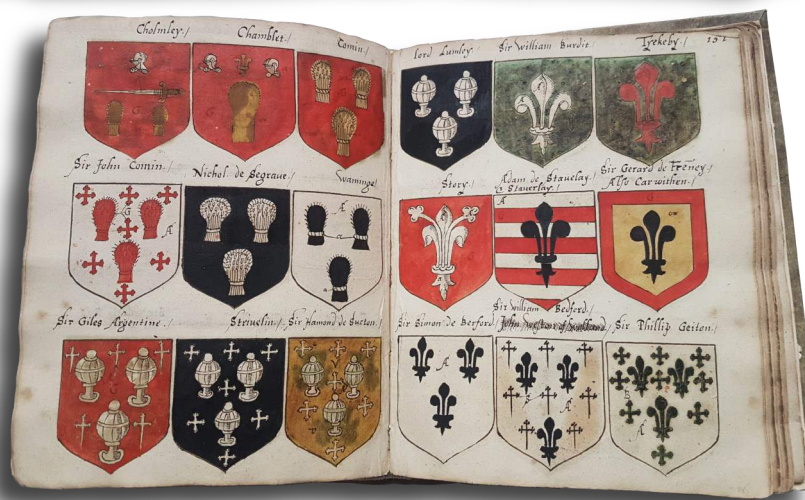 Cholmley./
Chamblet./
Comin./
Sir John Comin./
Nichol de Segrave./
Waminge/
Sir Giles Argentine./
Strivelin./
Sir Hamond de Sutton./
lord Lumley./
Sir William Burdit./
Trekeby./
151
Story./
Adam de Stavelay./
b Staverlay./
Sir Gerard de Freney/
Also Carwithen./
Sir William Bedford/
Sir Simon de Berford/
Sir Phillip Geiton./